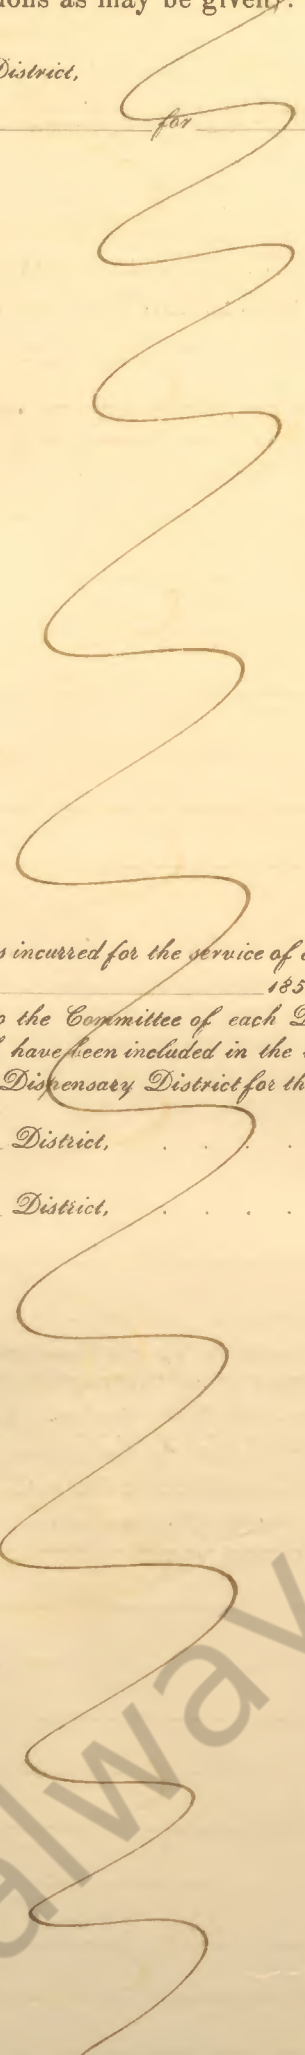 ions as may be given.
District,
for
s incurred for the service of
185
o the Committee of each D
have been included in the
Dispensary District for th
District, . . . .
District, . . . .
alway